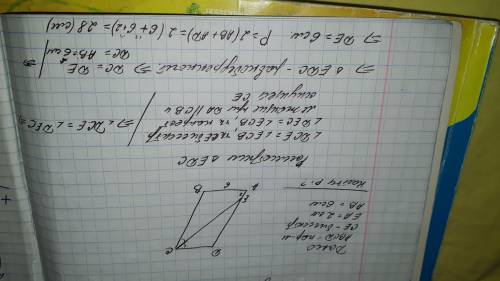 Дано
ABCD - пар-м
CE - биссектр
EA = 2 см
AB = 6 см
Найти P - ?
A
E
6
B
C
D
Рассмотрим △EDC
∠DCE = ∠ECB, т.к. CE биссектр
∠DEC = ∠ECB, т.к. накрест
лежащие при DA || CB и
секущей CE
⇒ ∠DCE = ∠DEC ⇒
⇒ △EDC - равнобедренный ⇒ DC = DE
DC = AB = 6 см
⇒
⇒ DE = 6 см P = 2(AB + AD) = 2(6 + 6 + 2) = 28 (см)